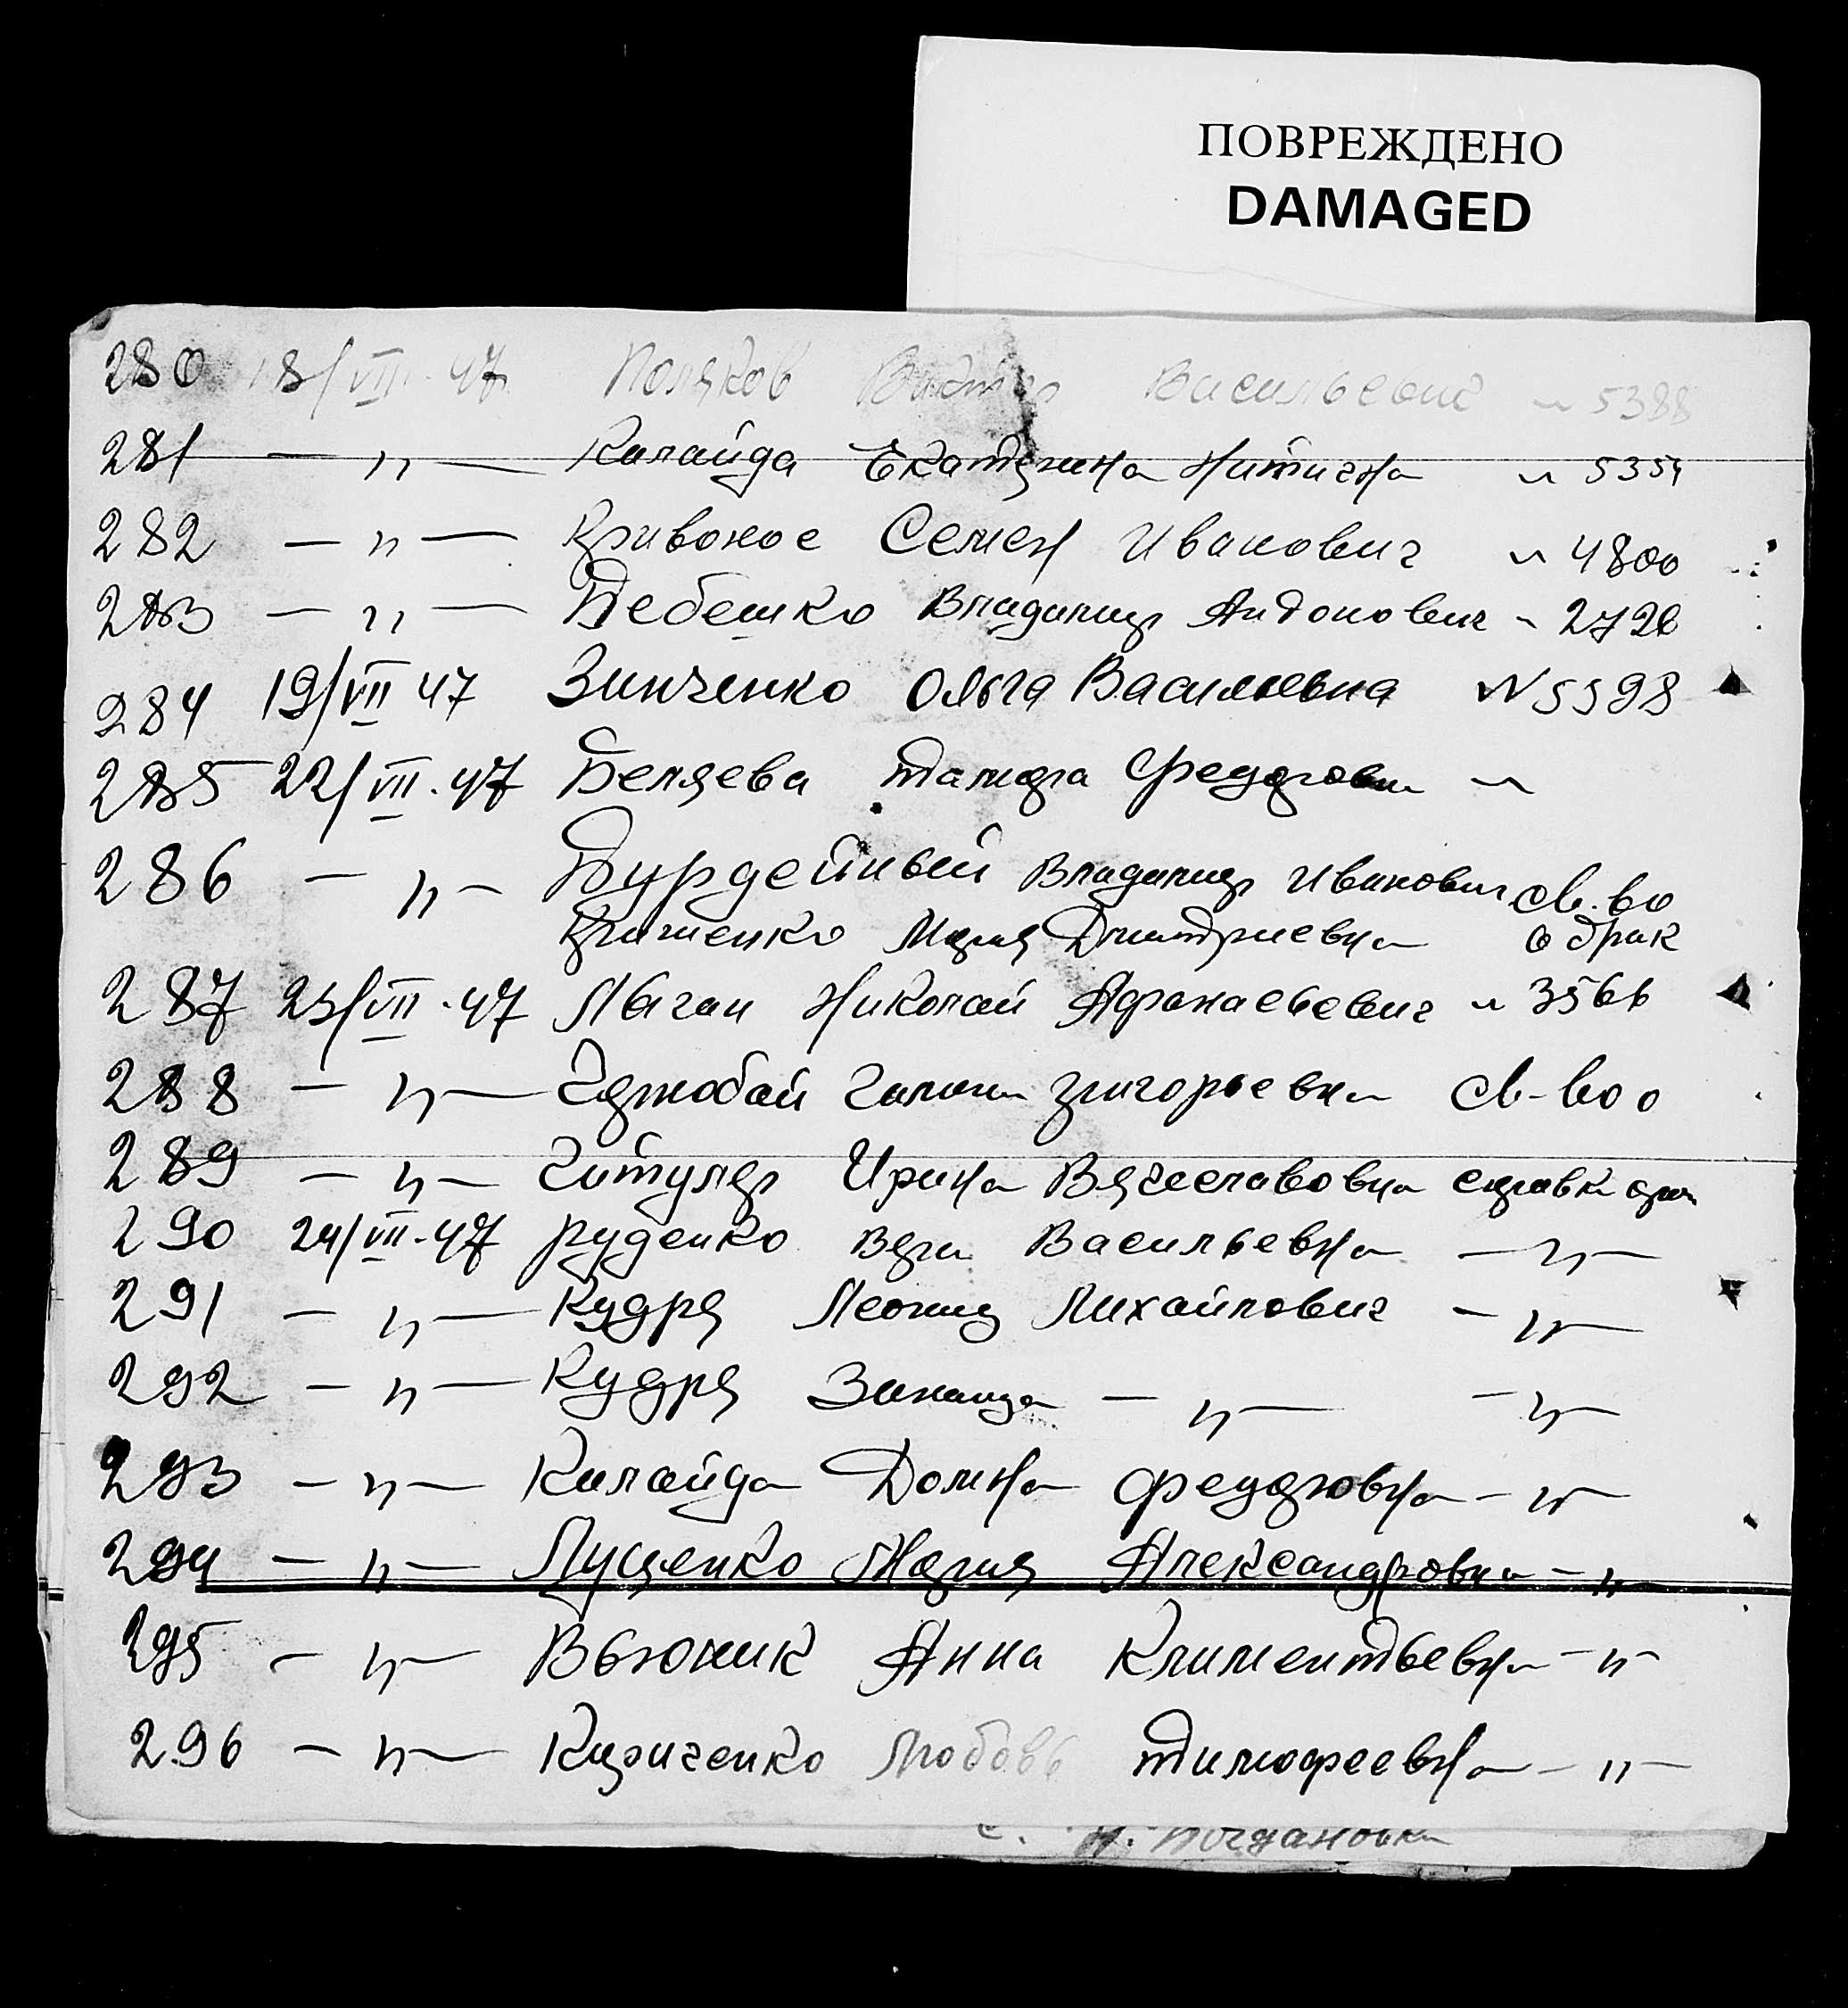 ПОВРЕЖДЕНО
DAMAGED
280 18/VII-47 Поляков Виктор Васильевич ~ 5388
281 — 〃 — Калайда Екатерина Никитична ~ 5354
282 — 〃 — Кривонос Семен Иванович ~ 4800
283 — 〃 — Дебешко Владимир Антонович ~ 2728
284 19/VII 47 Зинченко Ольга Васильевна N 5598
285 22/VII-47 Беляева Тамара Федоровна ~
286 — 〃 — Бурдейный Владимир Иванович св-во
Гриценко Мария Дмитриевна о брак
287 23/VII-47 Лыган Николай Афанасьевич ~ 3566
288 — 〃 — Григорьевна св-во о
289 — 〃 — Ирина Вячеславовна справка
290 24/VII-47 Руденко Вера Васильевна — 〃 —
291 — 〃 — Кудря Леонид Михайлович — 〃 —
292 — 〃 — Кудря Зинаида — 〃 — — 〃 —
293 — 〃 — Калайда Домна Федоровна — 〃 —
294 — 〃 — Луценко Мария Александровна — 〃 —
295 — 〃 — Вьюник Анна Климентьевна — 〃 —
296 — 〃 — Кириченко Любовь Тимофеевна — 〃 —
Богдановка